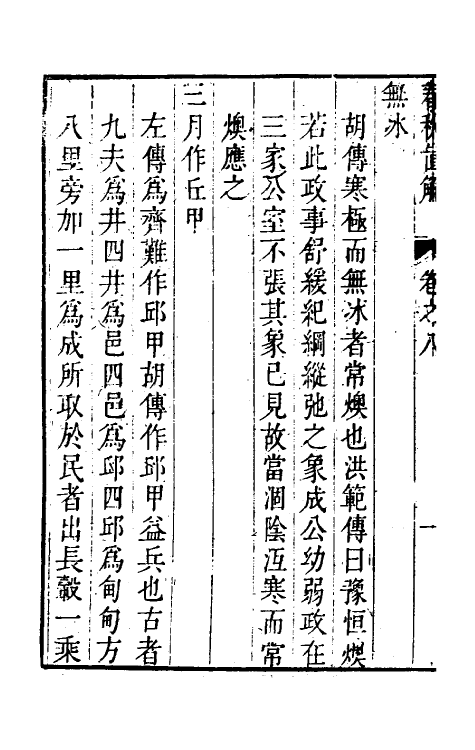 春秋直解 卷之八 一
無冰
胡傳寒極而無冰者常燠也洪範傳曰豫恒燠
若此政事舒緩紀綱縱弛之象成公幼弱政在
三家公室不張其象已見故當涸陰冱寒而常
燠應之
三月作丘甲
左傳為齊難作邱甲胡傳作邱甲益兵也古者
九夫為井四井為邑四邑為邱四邱為甸甸方
八里旁加一里為成所取於民者出長轂一乘